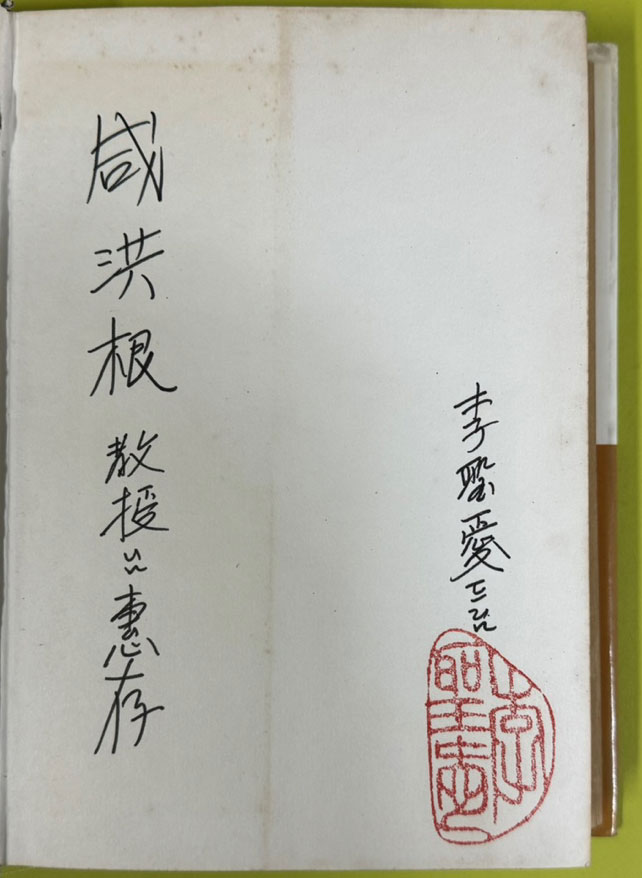 咸洪根 教授님 惠存
李聖愛 드림
李聖愛